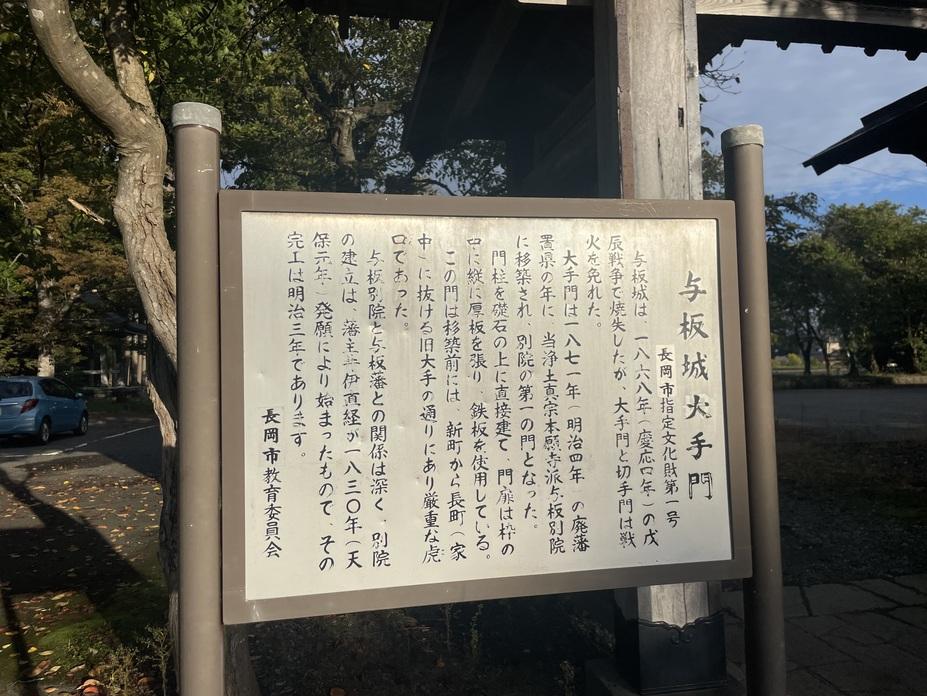 与板城大手門
長岡市指定文化財第一号
与板城は、一八六八年（慶応四年）の戊
辰戦争で焼失したが、大手門と切手門は戦
火を免れた。
大手門は一八七一年（明治四年）の廃藩
置県の年に、当浄土真宗本願寺派与板別院
に移築され、別院の第一の門となった。
門柱を礎石の上に直接建て、門扉は枠の
中に縦に厚板を張り、鉄板を使用している。
この門は移築前には、新町から長町（家
中）に抜ける旧大手の通りにあり厳重な虎
口であった。
与板別院と与板藩との関係は深く、別院
の建立は、藩主井伊直経が一八三〇年（天
保元年）発願により始まったもので、その
完工は明治三年であります。
長岡市教育委員会